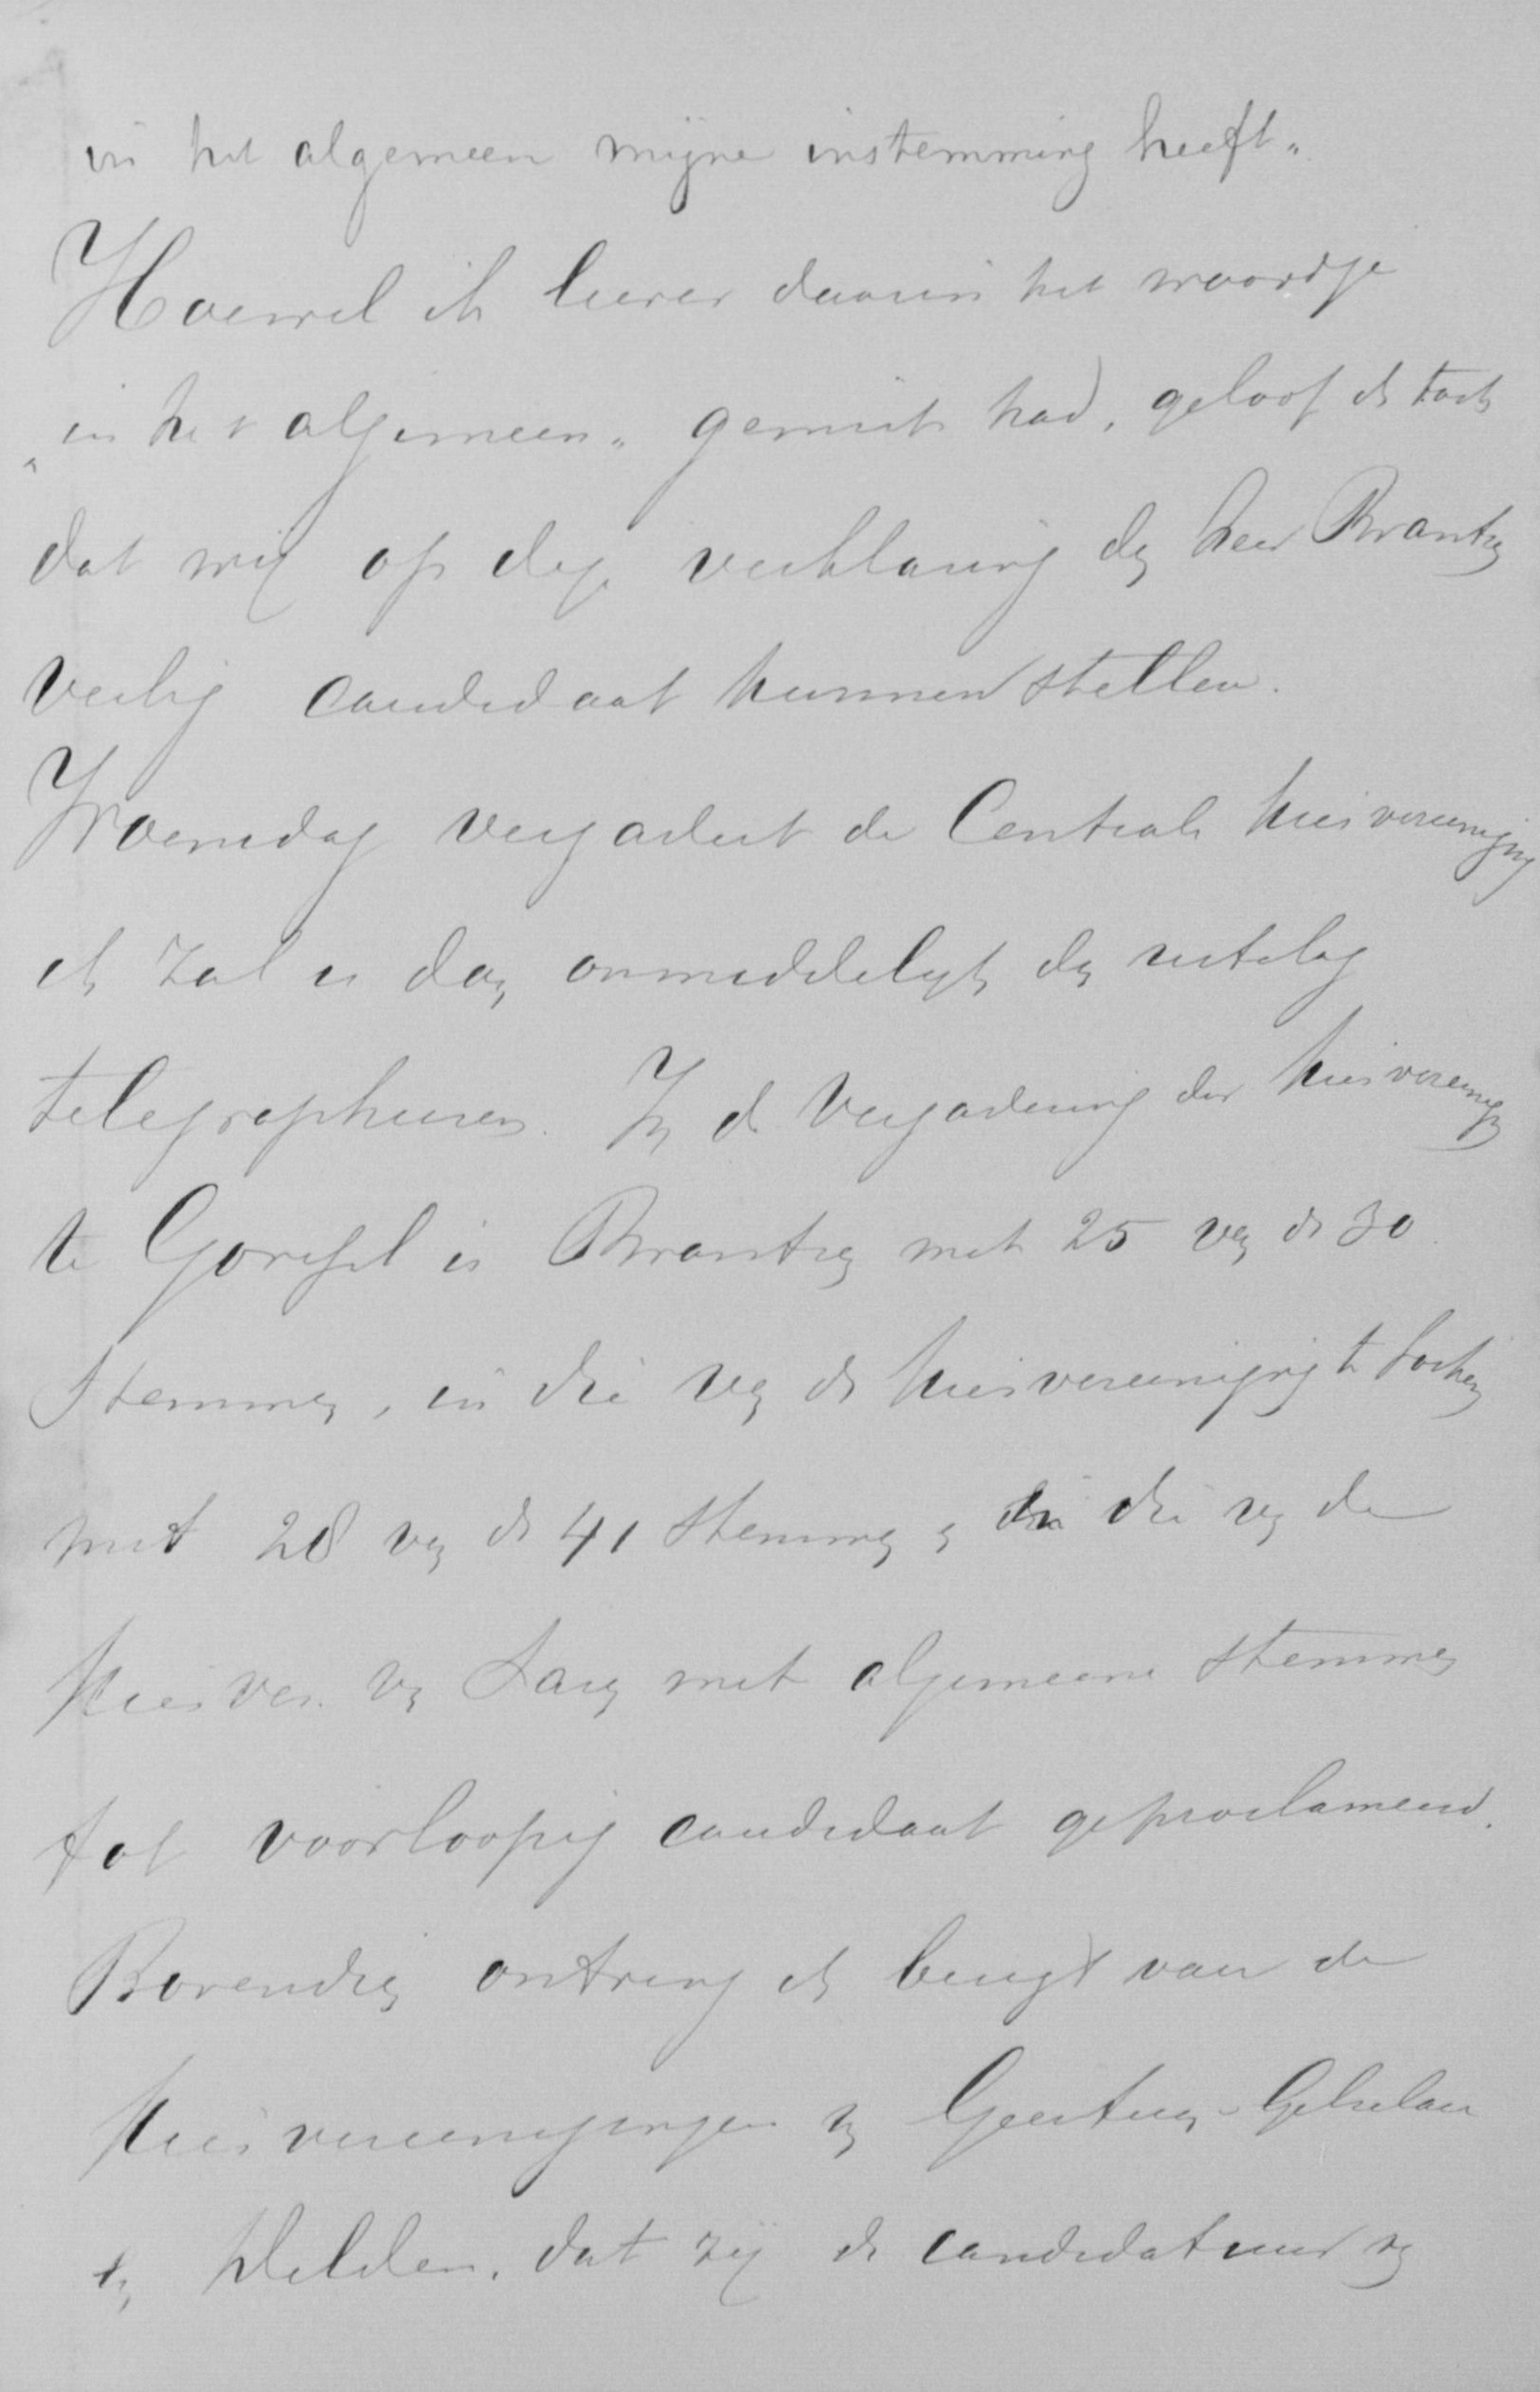 in het algemeen mijne instemming heeft"
Hoewel ik liever daarin het woordje
"in het algemeen" gemist had, geloof ik toch
dat wij op deze verklaring den heer Brantsen
veilig candidaat kunnen stellen.
Woensdag vergadert de Centrale kiesvereeniging
ik zal u dan onmiddelijk den uitslag
telegrapheeren. In de Vergadering der kiesvereeniging
te Gorssel is Brantsen met 25 van de 30
stemmen, in die van de kiesvereeniging te Lochem
met 28 van de 41 stemmen, die van de
kiesver. van Laren met algemeene stemmen
tot voorloopig candidaat geproclameerd.
Bovendien ontving ik berigt van de
kiesvereenigingen van Geesteren-Gelselaar
en Delden, dat zij de candidatuur van